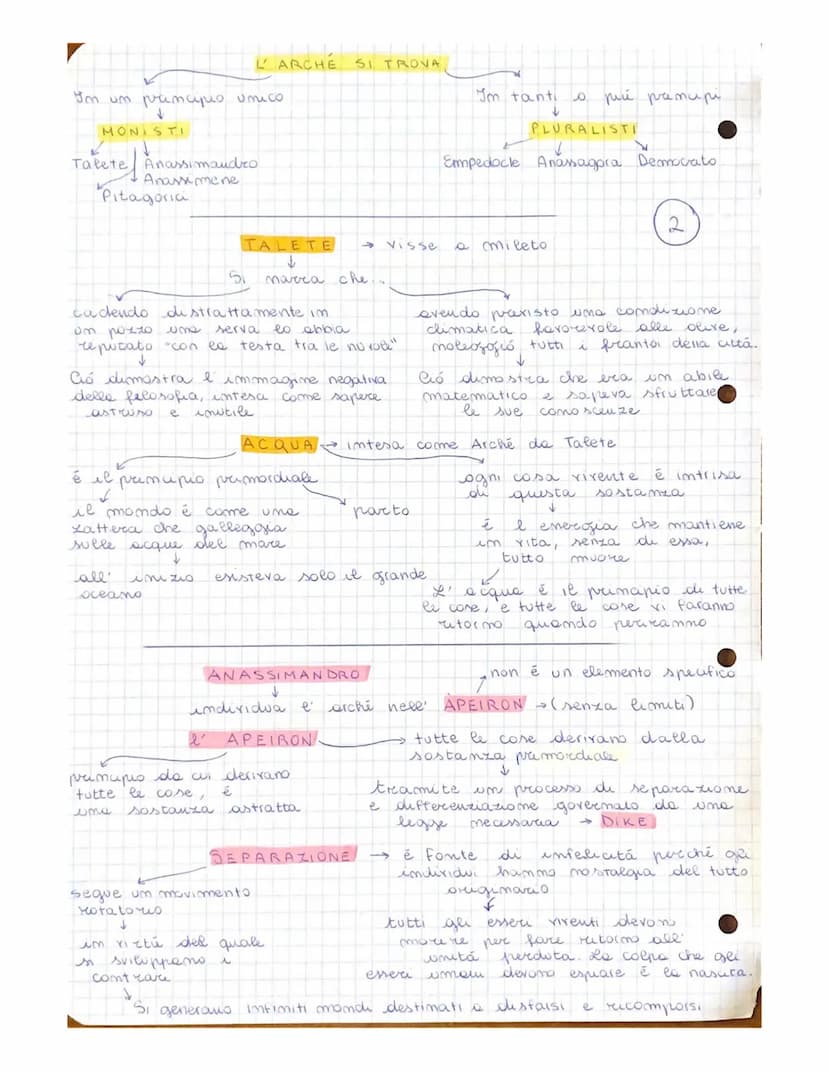 L' ARCHÉ SI TROVA
In um principio unico
In tanti o più principi
MONISTI
PLURALISTI
Talete Anassimandro
Anassimene
Pitagorici
Empedocle Anassagora Democrito
2
TALETE → visse a mileto
Si narra che...
cadendo distrattamente in
un pozzo una serva lo abbia
reputato "con la testa tra le nuvole"
Ció dimostra l'immagine negativa
della filosofia, intesa come sapere
astruso e inutile
avendo previsto una condizione
climatica favorevole alle olive,
noleggió tutti i frantoi della cittá.
Ció dimostra che era un abile
matematico e sapeva sfruttare
le sue conoscenze
ACQUA → intesa come Arché da Talete
é il principio primordiale
il mondo é come una
zattera che galleggia
sulle acque del mare
parto
all' inizio esisteva solo il grande
oceano
ogni cosa vivente é intrisa
di questa sostanza
é l energia che mantiene
in vita, senza di essa,
tutto muore
L' acqua é il principio di tutte
le cose, e tutte le cose vi faranno
ritorno quando periranno
ANASSIMANDRO
non é un elemento specifico
individua l' arché nell' ÀPEIRON → (senza limiti)
l' APEIRON → tutte le cose derivano dalla
sostanza primordiale
principio da cui derivano
tutte le cose, é
una sostanza astratta
tramite un processo di separazione
e differenziazione governato da una
legge necessaria → DIKE
SEPARAZIONE → é fonte di infelicitá perché gli
individui hanno nostalgia del tutto
originario
segue un movimento
rotatorio
in virtú del quale
si sviluppano i
contrari
tutti gli esseri viventi devon
morire per fare ritorno all'
unitá perduta. La colpa che gli
esseri umani devono espiare é la nascita.
Si generano infiniti mondi destinati a disfarsi e ricomporsi